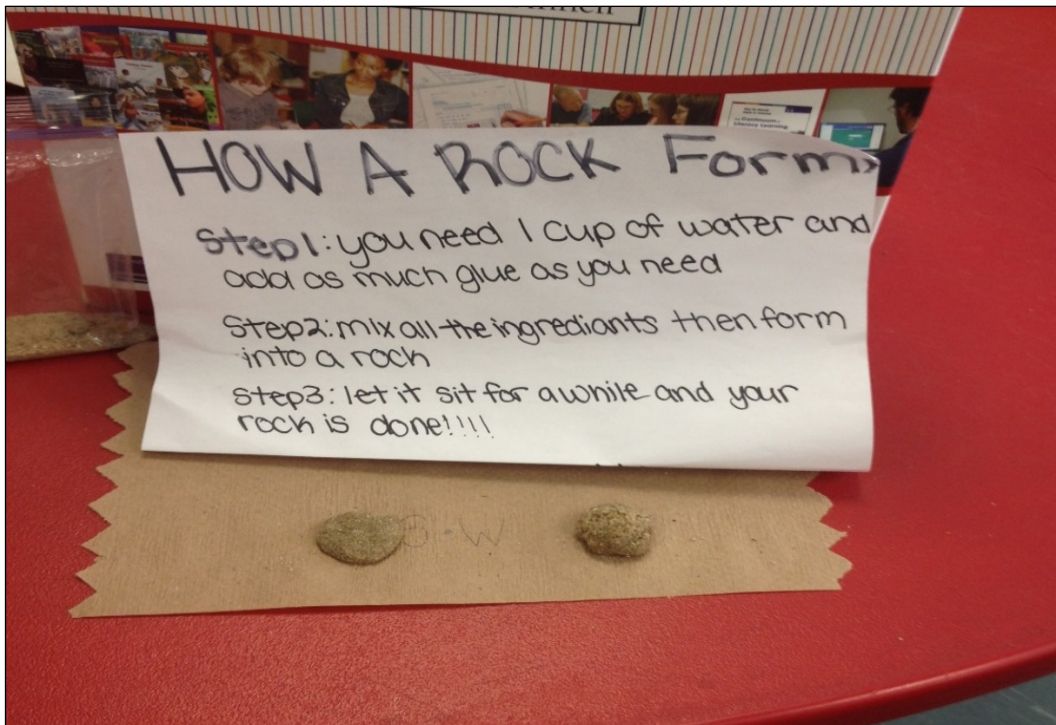 HOW A ROCK Forms
Step1: you need 1 cup of water and
add as much glue as you need
Step2: mix all the ingrediants then form
into a rock
Step3: let it sit for a while and your
rock is done!!!!
B-W